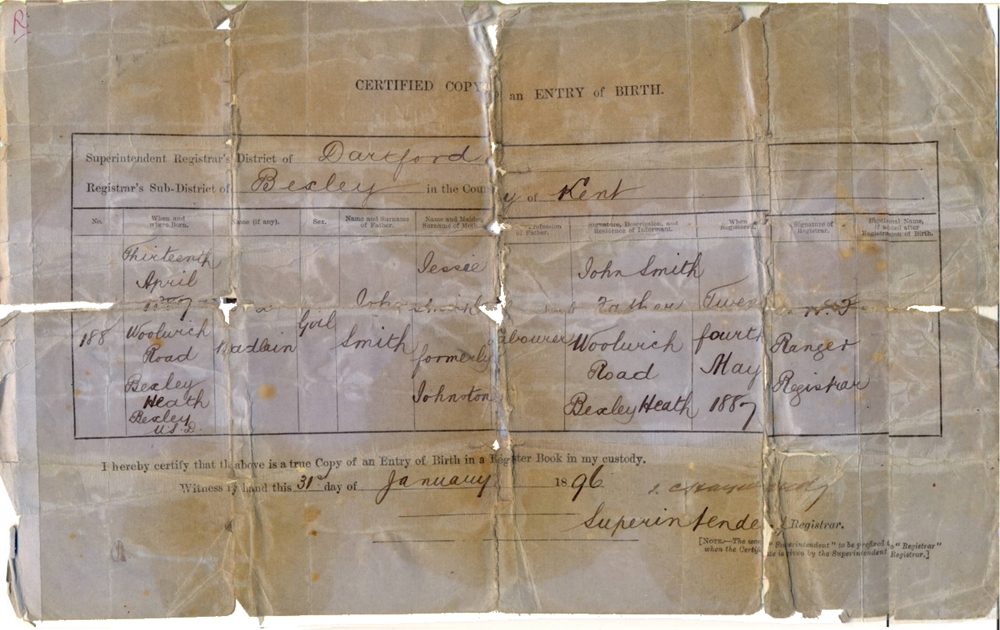 R
CERTIFIED COPY an ENTRY of BIRTH.
Superintendent Registrar's District of Dartford
Registrar's Sub-District of Bexley in the County of Kent
No.
When and where Born.
Name (if any).
Sex.
Name and Surname of Father.
Name and Maiden Surname of Mother.
Profession of Father.
Signature, Description, and Residence of Informant.
When Registered
Signature of Registrar.
188
Thirteenth
April
Woolwich
Road
Bexley
Heath
Bexley
U.S.D.
Girl
John
Smith
Jessie
Smith
formerly
Johnston
Labourer
John Smith
Father
Woolwich
Road
Bexley Heath
fourth
May
1887
Ranger
Registrar
I hereby certify that the above is a true Copy of an Entry of Birth in a Register Book in my custody.
Witness my hand this 31st day of January 1896
Superintendent Registrar.
[NOTE.—The word "Superintendent" to be prefixed to "Registrar"
when the Certificate is given by the Superintendent Registrar.]